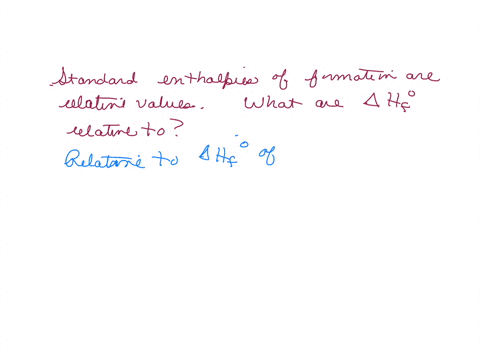 Standard enthalpies of formation are
relative values. What are ΔHf°
relative to?
Relative to ΔHf° of